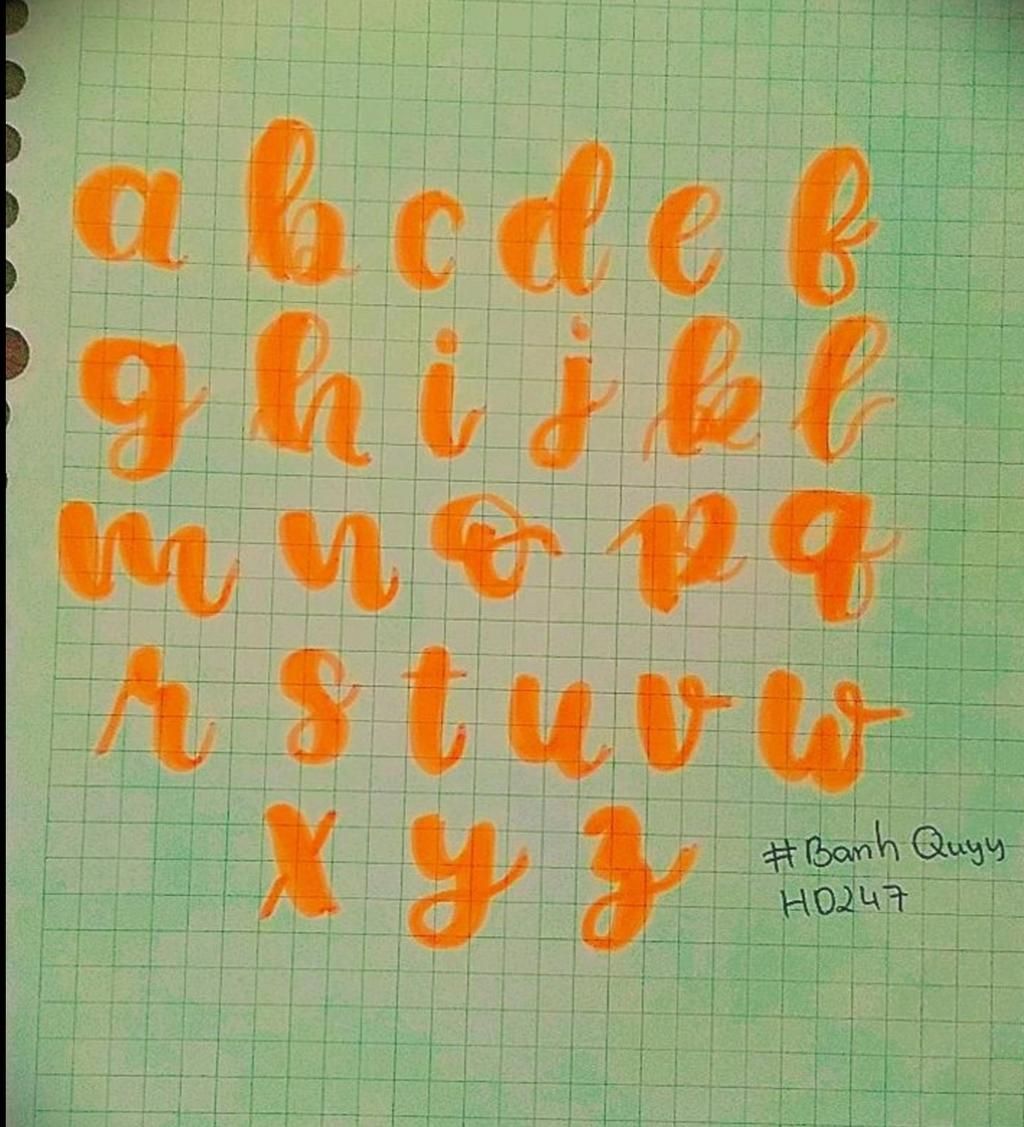 a b c d e f
g h i j k l
m n o p q
r s t u v w
x y z
#Banh Quyy
HD247